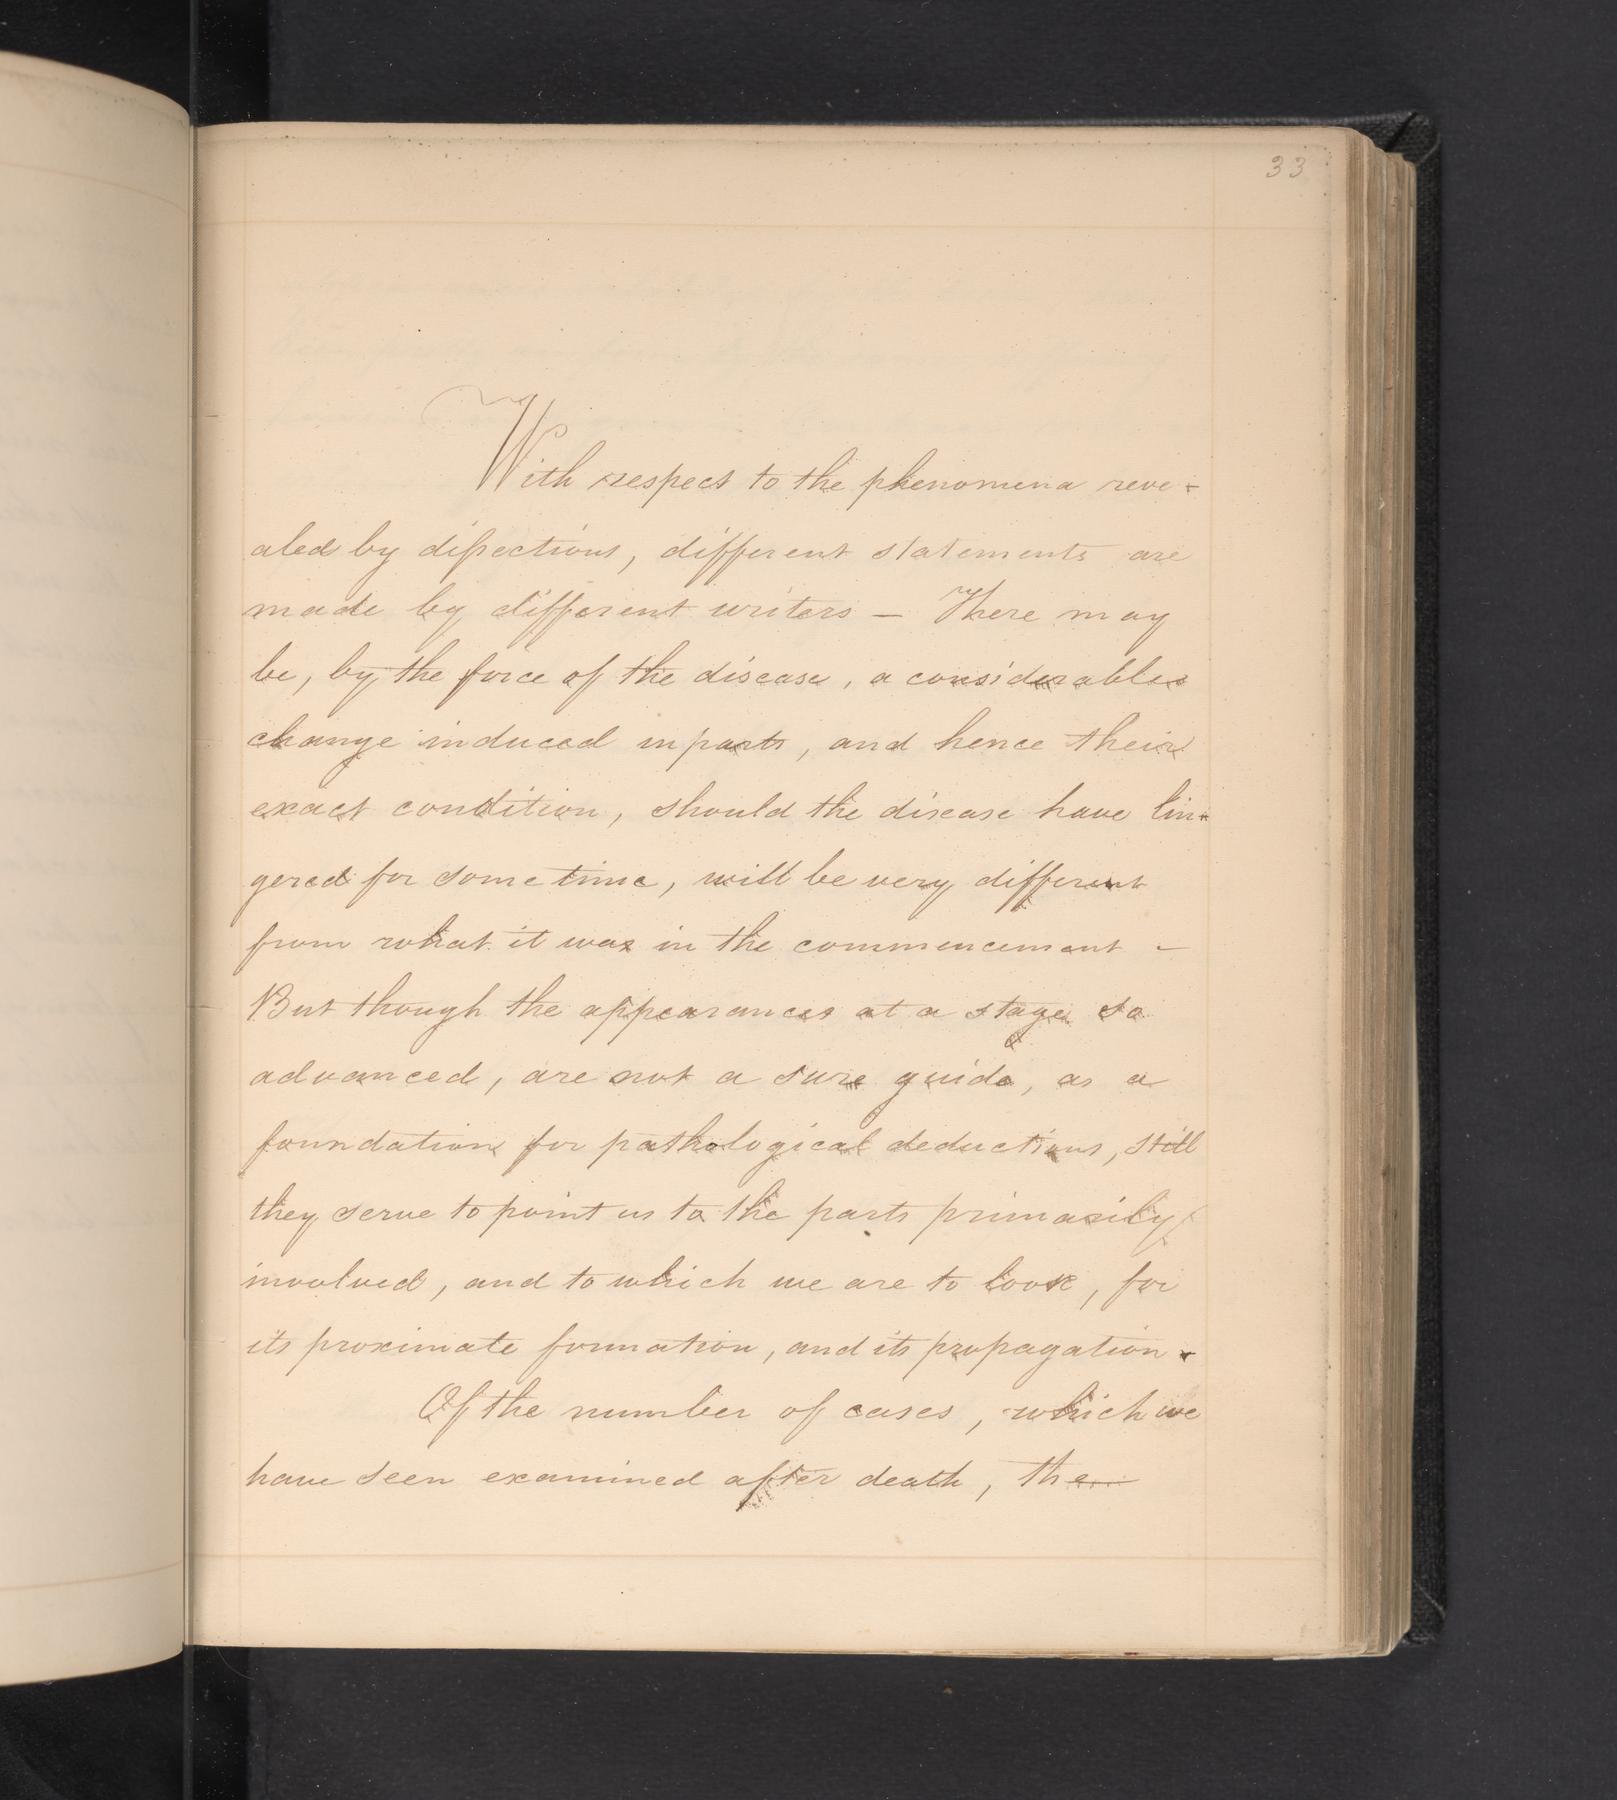 33
With respect to the phenomena reve-
aled by dissections, different statements are
made by different writers — There may
be, by the force of the disease, a considerable
change induced in parts, and hence their
exact condition, should the disease have lin-
gered for some time, will be very different
from what it was in the commencement –
But though the appearances at a stage so
advanced, are not a sure guide, as a
foundation for pathological deductions, still
they serve to point us to the parts primarily
involved, and to which we are to look, for
its proximate formation, and its propagation.
Of the number of cases, which we
have seen examined after death, the